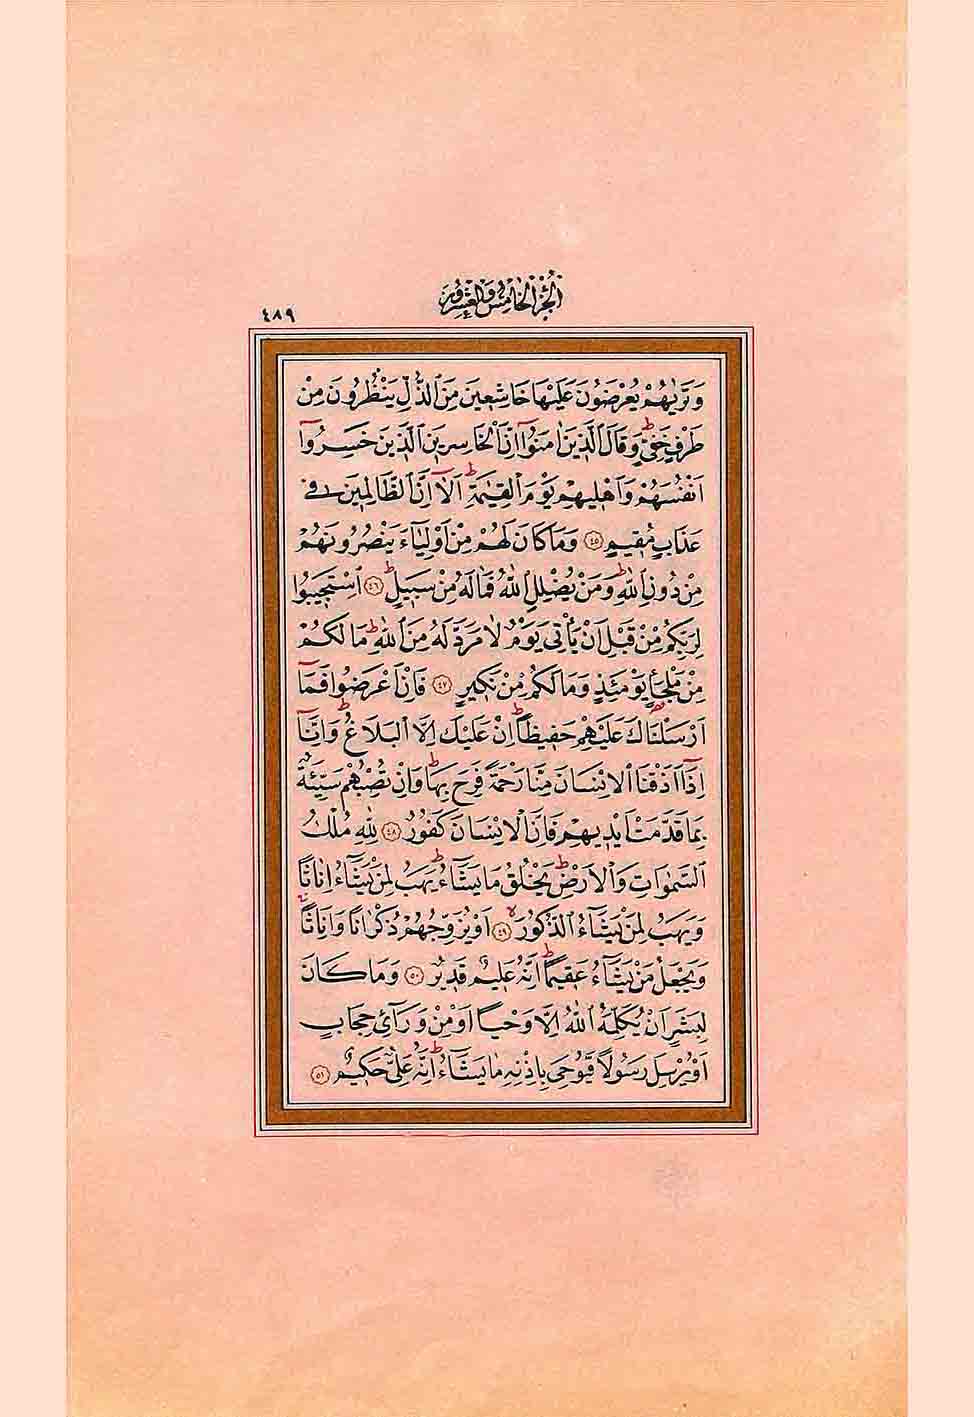 الجزء الخامس والعشرون
٤٨٩
وَتَرٰيهُمْ يُعْرَضُونَ عَلَيْهَا خَاشِعِينَ مِنَ الذُّلِّ يَنْظُرُونَ مِنْ
طَرْفٍ خَفِيٍّ ط وَقَالَ الَّذِينَ اٰمَنُوٓا اِنَّ الْخَاسِرِينَ الَّذِينَ خَسِرُوٓا
اَنْفُسَهُمْ وَاَهْلِيهِمْ يَوْمَ الْقِيٰمَةِ ط اَلَٓا اِنَّ الظَّالِمِينَ فِي
عَذَابٍ مُقِيمٍ ٤٥ وَمَا كَانَ لَهُمْ مِنْ اَوْلِيَٓاءَ يَنْصُرُونَهُمْ
مِنْ دُونِ اللّٰهِ ط وَمَنْ يُضْلِلِ اللّٰهُ فَمَا لَهُ مِنْ سَبِيلٍ ط ٤٦ اِسْتَجِيبُوا
لِرَبِّكُمْ مِنْ قَبْلِ اَنْ يَأْتِيَ يَوْمٌ لَا مَرَدَّ لَهُ مِنَ اللّٰهِ ط مَا لَكُمْ
مِنْ مَلْجَأٍ يَوْمَئِذٍ وَمَا لَكُمْ مِنْ نَكِيرٍ ٤٧ فَاِنْ اَعْرَضُوا فَمَٓا
اَرْسَلْنَاكَ عَلَيْهِمْ حَفِيظًا ط اِنْ عَلَيْكَ اِلَّا الْبَلَاغُ ط وَاِنَّٓا
اِذَٓا اَذَقْنَا الْاِنْسَانَ مِنَّا رَحْمَةً فَرِحَ بِهَا ط وَاِنْ تُصِبْهُمْ سَيِّئَةٌ
بِمَا قَدَّمَتْ اَيْدِيهِمْ فَاِنَّ الْاِنْسَانَ كَفُورٌ ٤٨ لِلّٰهِ مُلْكُ
السَّمٰوَاتِ وَالْاَرْضِ ط يَخْلُقُ مَا يَشَٓاءُ ط يَهَبُ لِمَنْ يَشَٓاءُ اِنَاثًا
وَيَهَبُ لِمَنْ يَشَٓاءُ الذُّكُورَ لا ٤٩ اَوْ يُزَوِّجُهُمْ ذُكْرَانًا وَاِنَاثًا
وَيَجْعَلُ مَنْ يَشَٓاءُ عَقِيمًا ط اِنَّهُ عَلِيمٌ قَدِيرٌ ٥٠ وَمَا كَانَ
لِبَشَرٍ اَنْ يُكَلِّمَهُ اللّٰهُ اِلَّا وَحْيًا اَوْ مِنْ وَرَٓائِ حِجَابٍ
اَوْ يُرْسِلَ رَسُولًا فَيُوحِيَ بِاِذْنِهِ مَا يَشَٓاءُ ط اِنَّهُ عَلِيٌّ حَكِيمٌ ٥١